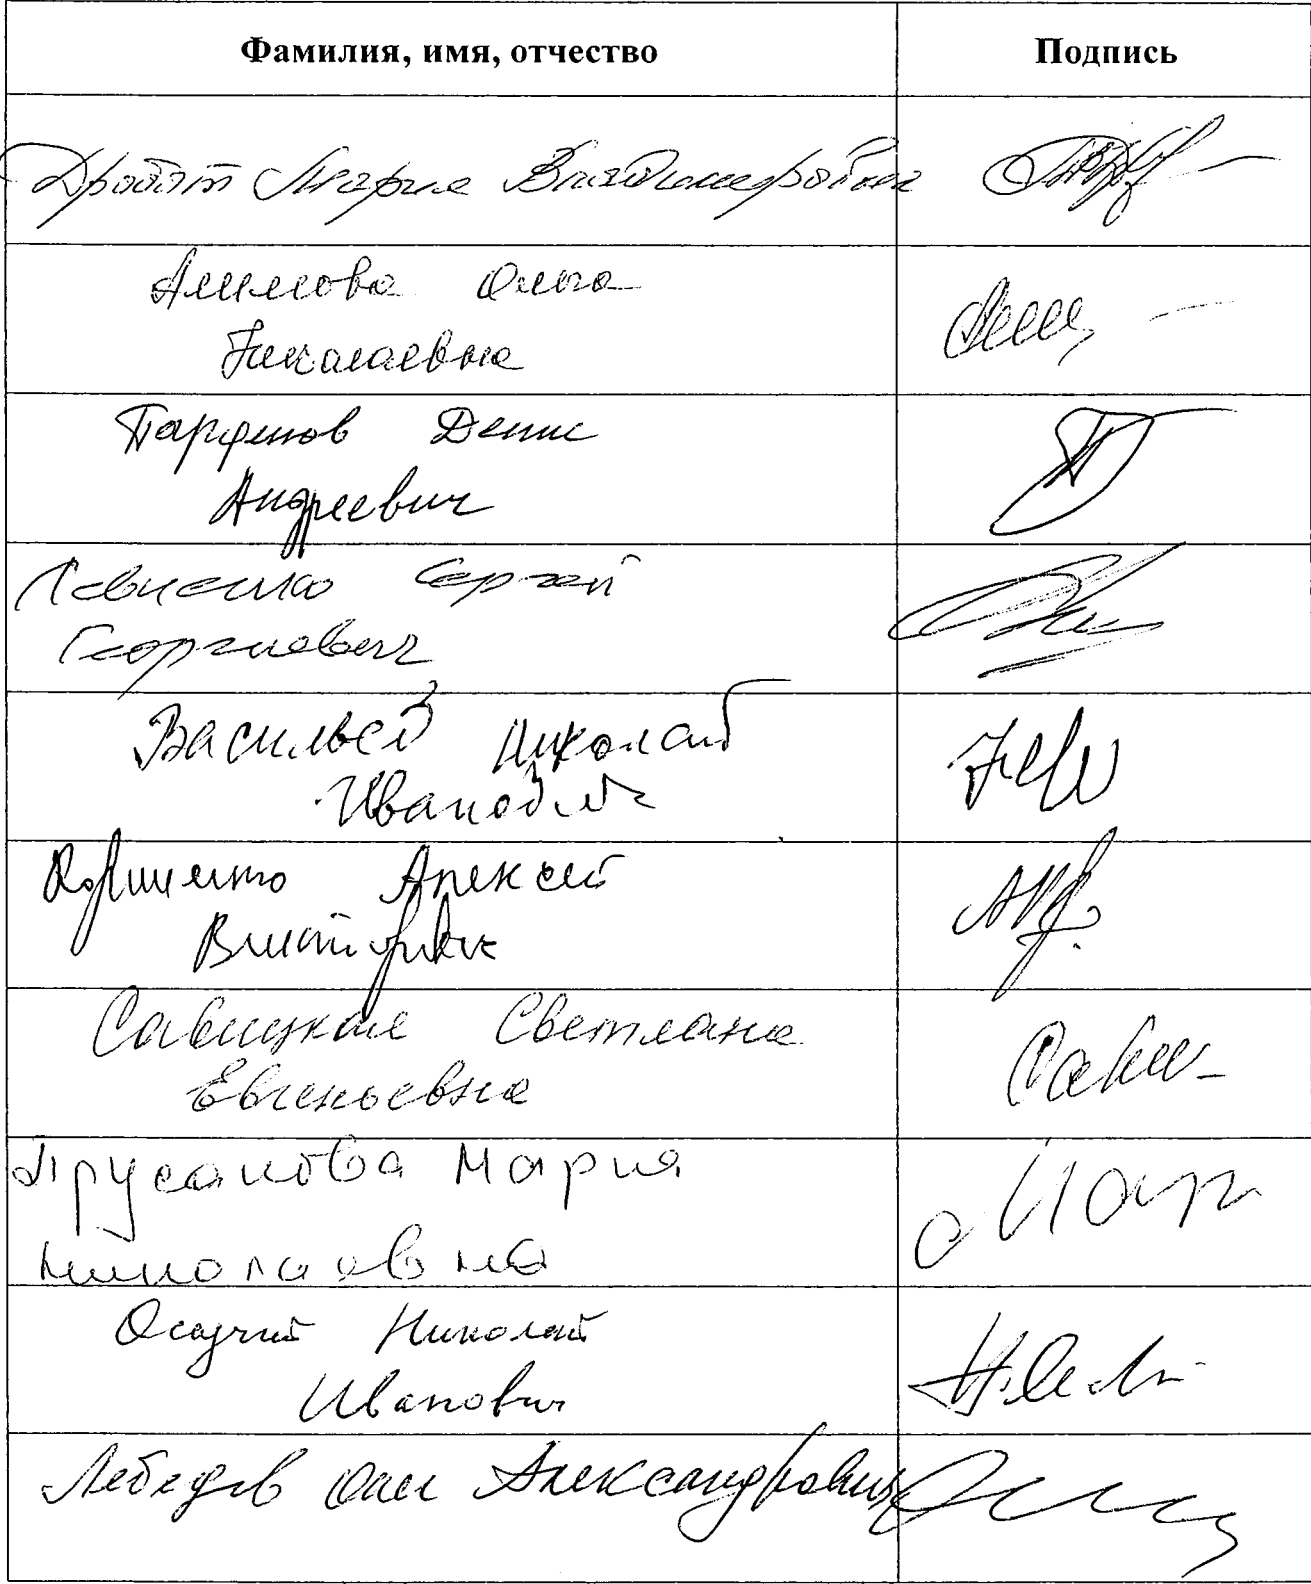 Фамилия, имя, отчество Подпись
Дробот Мария Владимировна
Ольга
Николаевна
Парфенов Денис
Андреевич
Левченко Сергей
Георгиевич
Васильев Николай
Иванович
Алексей
Викторович
Савицкая Светлана
Евгеньевна
Прусакова Мария
Николаевна
Осадчий Николай
Иванович
Лебедев Олег Александрович